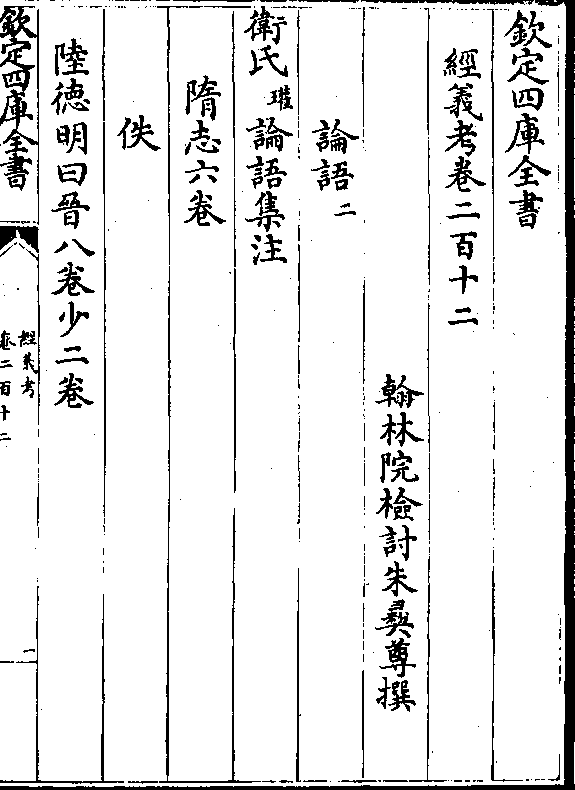 欽定四庫全書
經義考卷二百十二
翰林院檢討朱彝尊撰
論語二
衛氏瓘論語集注
隋志六卷
佚
陸德明曰晉八卷少二卷
欽定四庫全書
經義考
卷二百十二
一